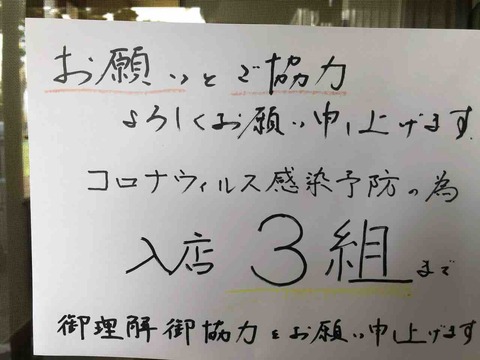 お願いとご協力
よろしくお願い申し上げます
コロナウィルス感染予防の為
入店3組まで
御理解御協力をお願い申し上げます